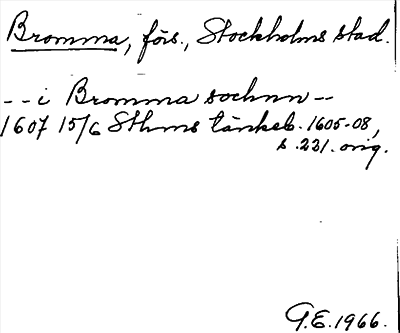 Bromma, förs., Stockholms stad.
-- i Bromma sochnn --
1607 15/6 Sthms tänkeb. 1605-08,
s. 231. orig.
G.E. 1966.